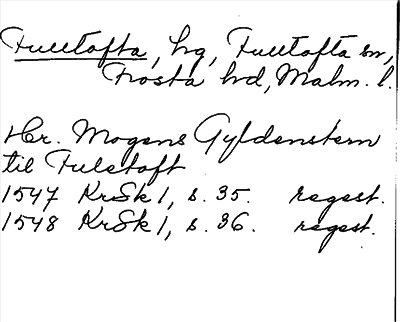 Fulltofta, hg, Fulltofta sn,
Frosta hd, Malm. l.
Hr. Mogens Gyldenstern
til Fuletoft
1547 KrSk 1, s. 35. regest.
1548 KrSk 1, s. 36. regest.